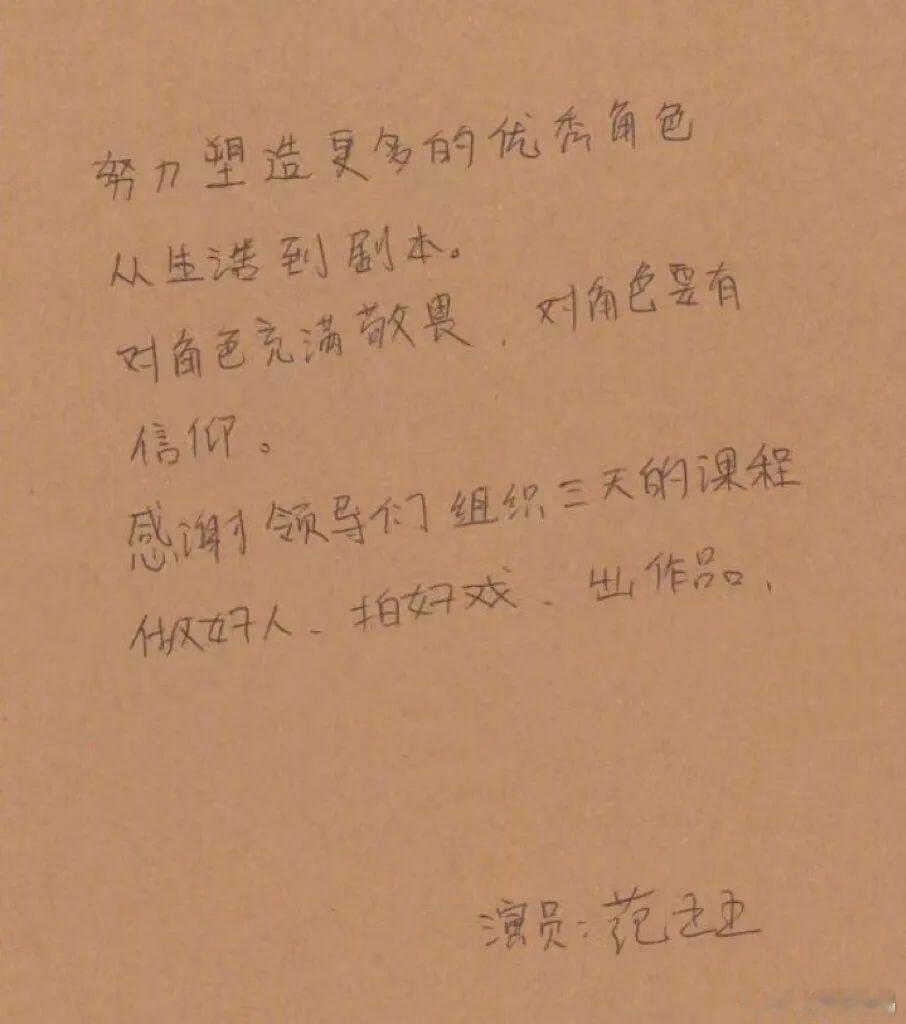 努力塑造更多的优秀角色
从生活到剧本。
对角色充满敬畏，对角色要有
信仰。
感谢领导们组织三天的课程
做好人、拍好戏、出作品，
演员：范丞丞